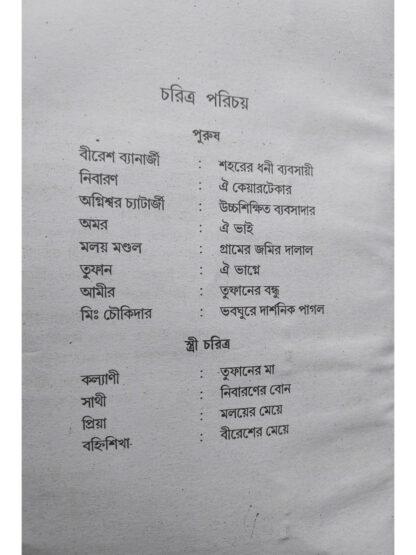 চরিত্র পরিচয়
পুরুষ
বীরেশ ব্যানার্জী : শহরের ধনী ব্যবসায়ী
নিবারণ : ঐ কেয়ারটেকার
অগ্নিশ্বর চ্যাটার্জী : উচ্চশিক্ষিত ব্যবসাদার
অমর : ঐ ভাই
মলয় মণ্ডল : গ্রামের জমির দালাল
তুফান : ঐ ভাগ্নে
আমীর : তুফানের বন্ধু
মিঃ চৌকিদার : ভবঘুরে দার্শনিক পাগল
স্ত্রী চরিত্র
কল্যাণী : তুফানের মা
সাথী : নিবারণের বোন
প্রিয়া : মলয়ের মেয়ে
বহ্নিশিখা : বীরেশের মেয়ে